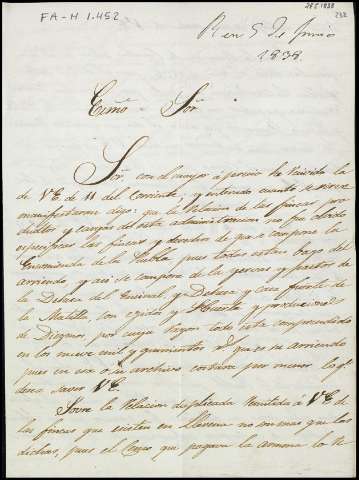 FA-H 1.452
R en 5 de Junio
1838
Exmo Sor
Sor con el mayor aprecio he recivido la
de V.E. de 11 del Corriente, y enterado cuanto se sirve
manifestarme digo: que la Relacion de las fincas pro
ductos y cargas de esta administracion no fue olvido
especificar las fincas y derechos de que se compone la
Encomienda de la pues todas estan bajo del
arriendo y asi se compone de la yervas y pastos de
la Dehesa del Encinal, y Dehesa y casa fuerte de
la Matilla con egidos y Huerta y producciones
de Diezmos por cuya razon todo esta comprendido
en los nueve mil y quinientos que es su arriendo
pues en esa ó su archivo constara por menor lo q
desea saver V.E.
Sobre la Relacion duplicada remitida á V.E. de
las fincas que existen en Llerena no son mas que las
dichas, pues el Censo que pagava la